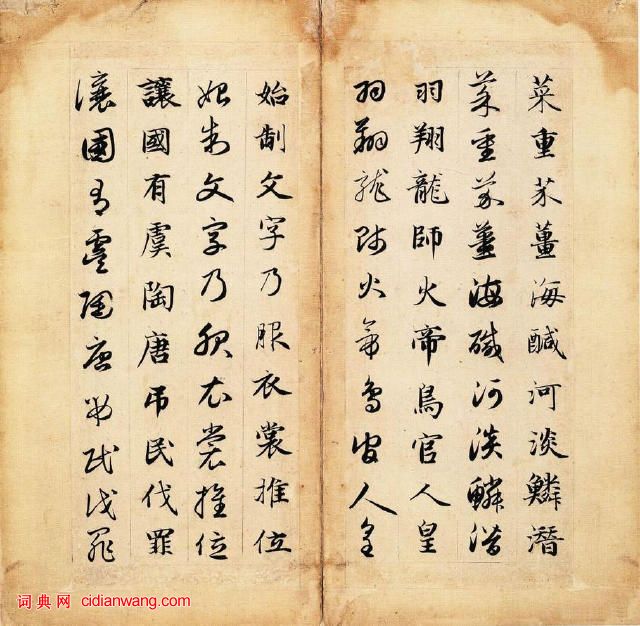 菜重芥薑海醎河淡鱗潛
菜重芥薑海醎河淡鱗潛
羽翔龍師火帝鳥官人皇
羽翔龍師火帝鳥官人皇
始制文字乃服衣裳推位
始制文字乃服衣裳推位
讓國有虞陶唐吊民伐罪
讓國有虞陶唐吊民伐罪
词典网 cidianwang.com